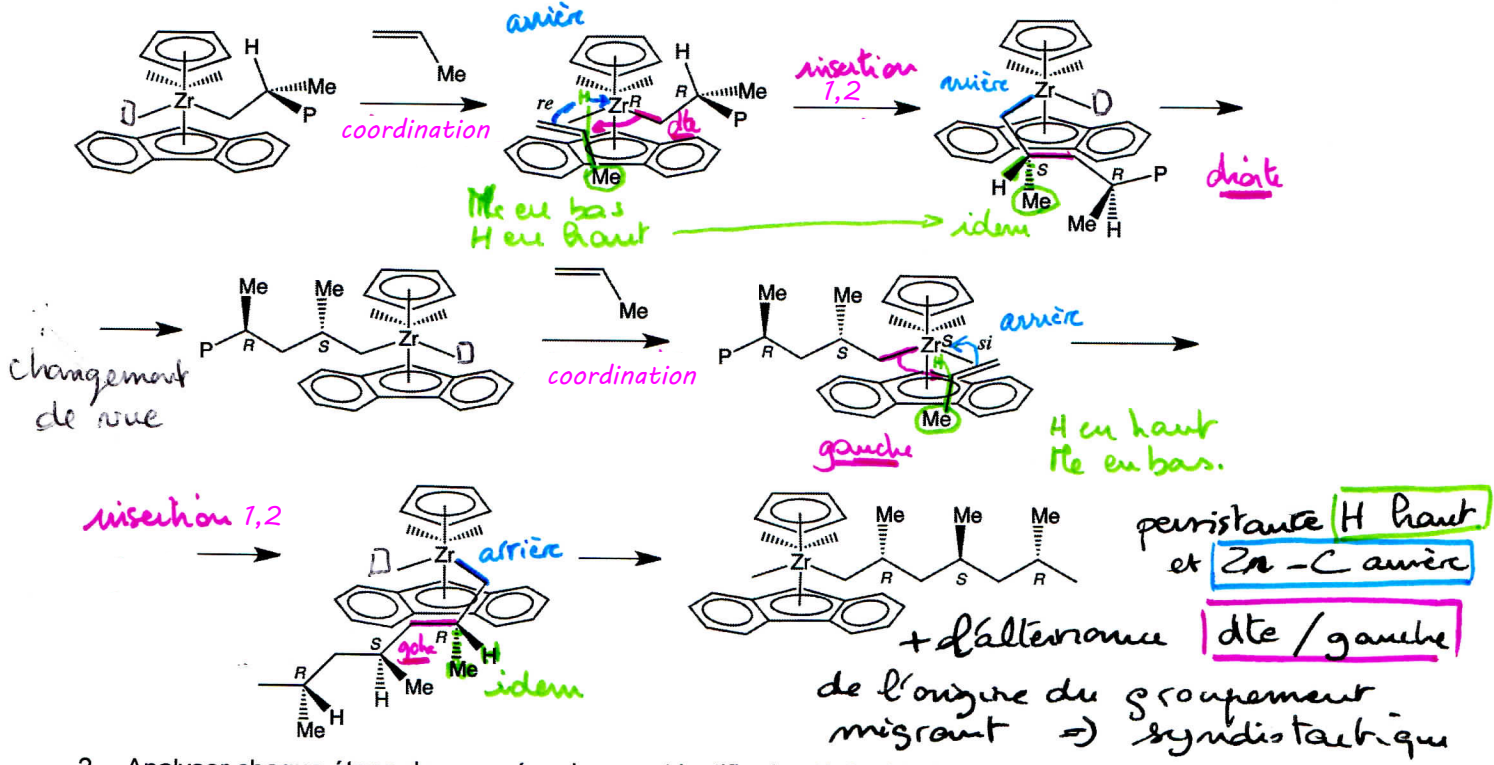 arrière
H
Me
Me
P
Zr
coordination
re
H
Zr
R
R
H
Me
P
dte
Me
Me en bas
H en haut
insertion
1,2
arrière
Zr
H
S
Me
R
P
Me
H
idem
droite
changement
de vue
Me
Me
P
R
S
Zr
Me
coordination
Me
Me
P
R
S
Zr
S
si
arrière
H
Me
gauche
H en haut
Me en bas.
insertion 1,2
Zr
arrière
S
gche
R
H
Me
idem
R
H
Me
Me
H
Me
Me
Me
Zr
R
S
R
persistante H haut
et Zr-C arrière
+ d'alternance dte / gauche
de l'origine du groupement
migrant => syndiotactique
2. Analyser chaque étape